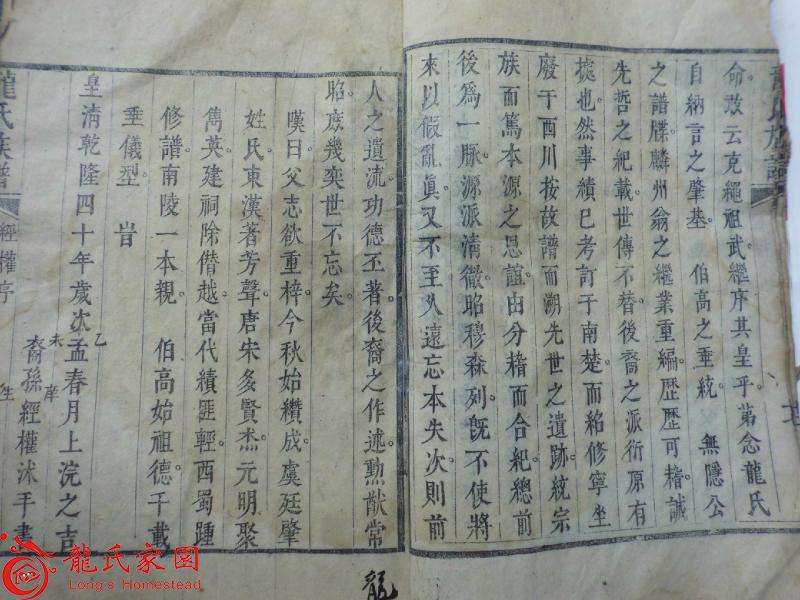 龍氏族譜
命故云克繩祖武繼序其皇乎苐念龍氏
自納言之肇基。伯高之垂統。無隱公
之譜牒。麟州翁之繼業。重編歷歷可稽。誠
先哲之紀載。世傳不替。後裔之派衍原有
據也。然事績已考訂于南楚。而紹修寧坐
廢于西川。按故譜而溯先世之遺跡。統宗
族而篤本源之思誼。由分稽而合紀。總前
後爲一脉。源派清徹。昭穆森列。旣不使將
來以假亂眞。又不至久遠忘本失次。則前
人之遺流功德丕著。後裔之作述勲猷常
昭。庶幾奕世不忘矣。
嘆曰父志欲重梓。今秋始纘成。虞廷肇
姓氏。東漢著芳聲。唐宋多賢杰。元明聚
雋英。建祠除僭越。當代績匪輕。西蜀踵
修譜。南陵一本親。伯高始祖德。千載
垂儀型。旹
皇清乾隆四十年歲次乙未孟春月上浣之吉
裔孫經權沐手書
龍氏族譜
經權序
龍
龍氏家園
Long's Homestead